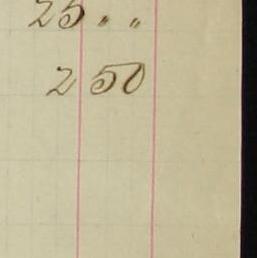 25 " "
2 50